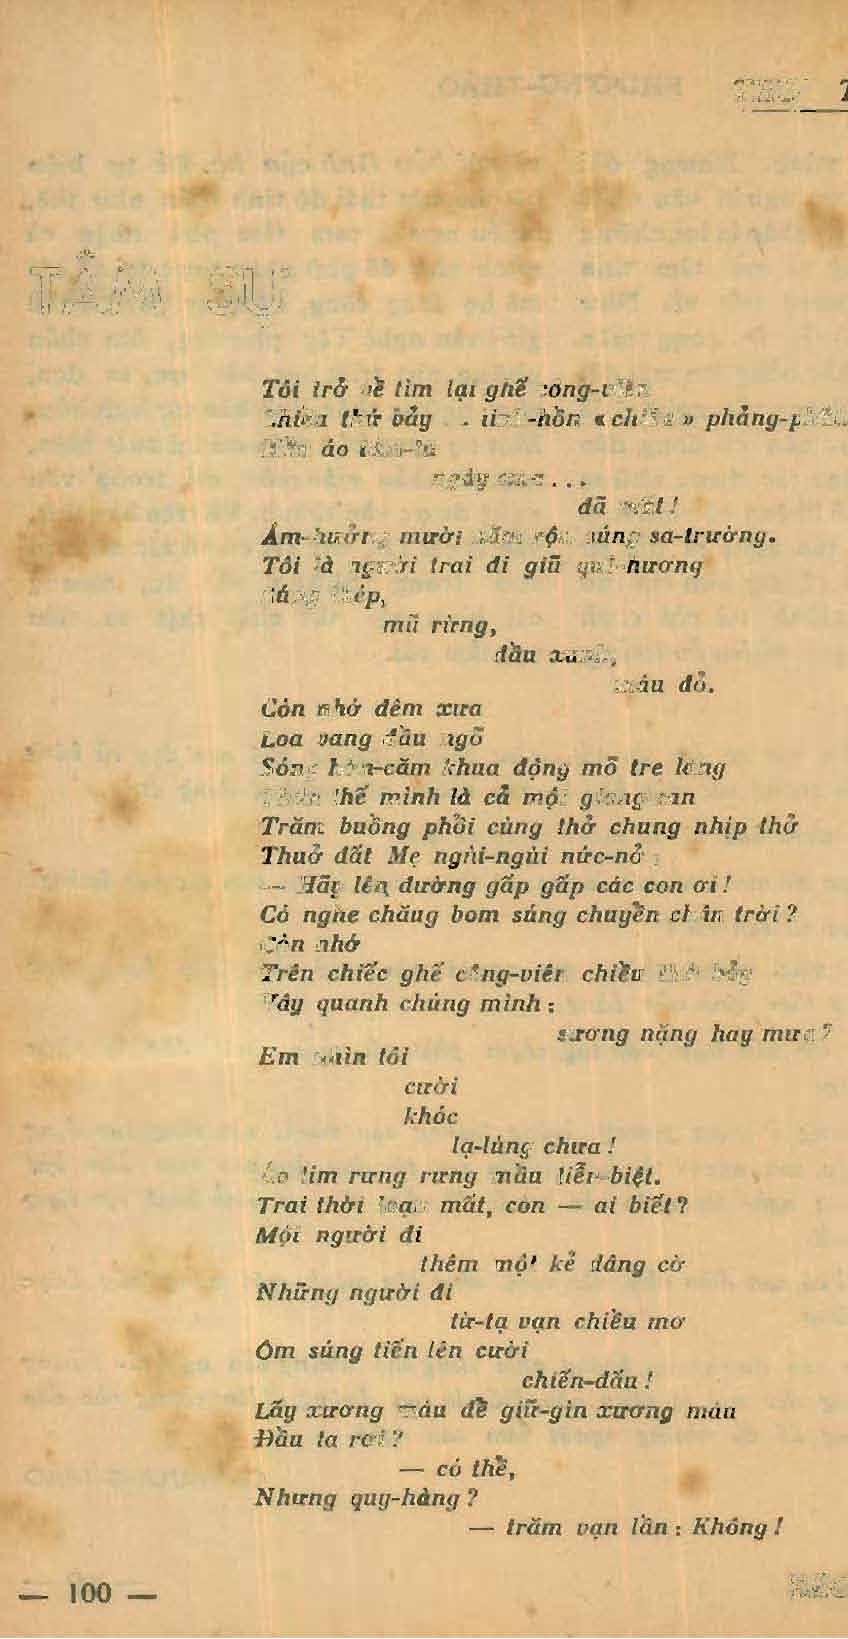 TÂM SỰ
Tôi trở về tìm lại ghế công-viên
Chiều thứ bảy . . linh-hồn « chiều »
áo
ngày xưa . . .
đã mất !
Âm-hưởng mười năm rộn súng sa-trường.
Tôi là người trai đi giữ quê-hương
Súng thép,
mũ rừng,
đầu xanh,
máu đỏ.
Còn nhớ đêm xưa
Loa vang đầu ngõ
Sóng hờn-căm khua động mõ tre làng
thế mình là cả một giang-san
Trăm buồng phổi cùng thở chung nhịp thở
Thuở đất Mẹ ngùi-ngùi nức-nở :
— Hãy lên đường gấp gấp các con ơi !
Có nghe chăng bom súng chuyển chân trời ?
Còn nhớ
Trên chiếc ghế công-viên chiều thứ bảy
Vây quanh chúng mình :
sương nặng hay mưa ?
Em nhìn tôi
cười
khóc
lạ-lùng chưa !
Áo tím rưng rưng mầu tiễn-biệt.
Trai thời loạn mất, còn — ai biết ?
Mỗi người đi
thêm một kẻ dâng cờ
Những người đi
từ-tạ vạn chiều mơ
Ôm súng tiến lên cười
chiến-đấu !
Lấy xương máu để giữ-gìn xương máu
Đầu ta rơi ?
— có thể,
Nhưng quy-hàng ?
— trăm vạn lần : Không !
— 100 —